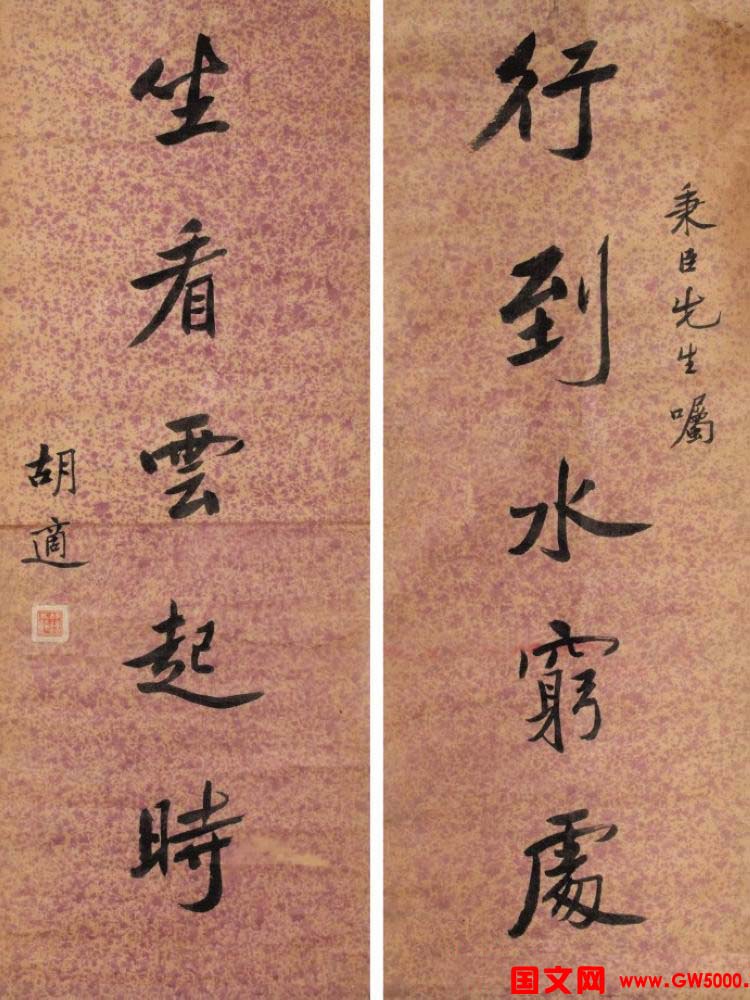 秉臣先生囑
行到水窮處
坐看雲起時
胡適
国文网 www.GW5000.com